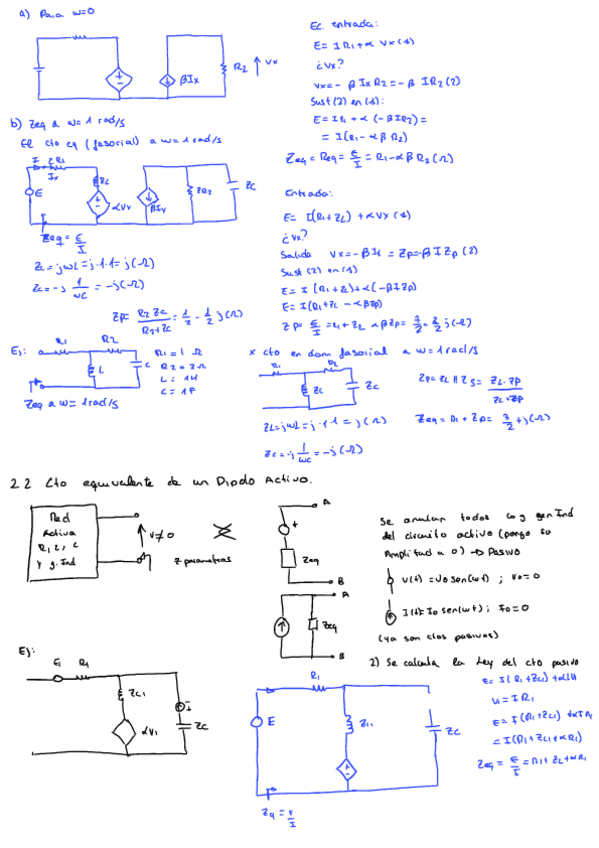 a) Para w=0
R2
Vx
βIx
Ec. entrada:
E= I R1 + α Vx (1)
¿Vx?
Vx=- β Ix R2 = - β I R2 (2)
Sust (2) en (1):
E= IR1 + α (-βIR2) =
= I(R1 - α β R2)
Zeq = Req = E/I = R1 - α β R2 (Ω)
b) Zeq a w= 1 rad/s
El cto eq (fasorial) a w= 1 rad/s
I
ZR1
Ix
E
ZL
αVx
ZR2
ZC
Zeq = E/I
ZL = jωL = j·1·1 = j(Ω)
ZC = -j 1/ωC = -j(Ω)
ZP = R2 ZC/R2+ZC = 1/2 - 1/2 j(Ω)
Entrada:
E= I(R1+ZL) + αVx (1)
¿Vx?
Salida Vx=-βIx = ZP=-β I ZP (2)
Sust (2) en (1)
E= I (R1 + ZL) + α(-βIZP)
E= I(R1+ZL - αβZP)
Ej:
R1
R2
L
C
R1 = 1 Ω
R2 = 2Ω
L = 1H
C = 1F
Zeq a w= 1rad/s
x cto en dom fasorial a w= 1 rad/s
R1
R2
ZL
ZC
ZL=jωL = j·1·1 = j(Ω)
ZC=-j 1/ωC = -j(Ω)
Zeq = R1 + Zp = 3/2 + j(Ω)
2.2 Cto equivalente de un Dipolo Activo.
Red
Activa
R, L, C
y g. Ind
V≠0
2 parametros
A
Zeq
B
A
Zeq
B
Se anulan todos los gen Ind
del circuito activo (pongo su
Amplitud a 0) → Pasivo
V(t) = V0 sen(wt) ; V0 = 0
I(t)= I0 sen(wt) ; I0 = 0
(ya son ctos pasivos)
Ej:
E1
R1
ZL1
αV1
I
ZC
2) Se calcula la Ley del cto pasivo
R1
E
ZL1
ZC
Zeq = E/I
E= I(R1+ZL1) + αU
U = I R1
E= I(R1+ZL1) + αI R1
= I(R1 + ZL1 + αR1)
Zeq = E/I = R1 + ZL + αR1